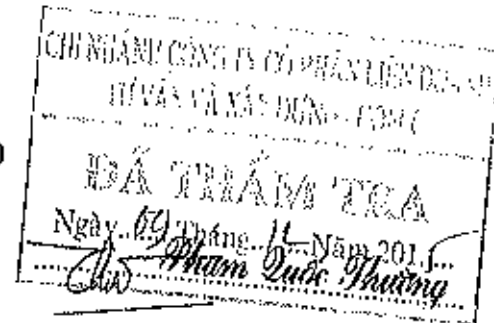 CHI NHÁNH CÔNG TY CỔ PHẦN LIÊN DOANH
TƯ VẤN VÀ XÂY DỰNG -
ĐÃ THẨM TRA
Ngày..09..Tháng..11..Năm 201.5...
Phạm Quốc Thưởng